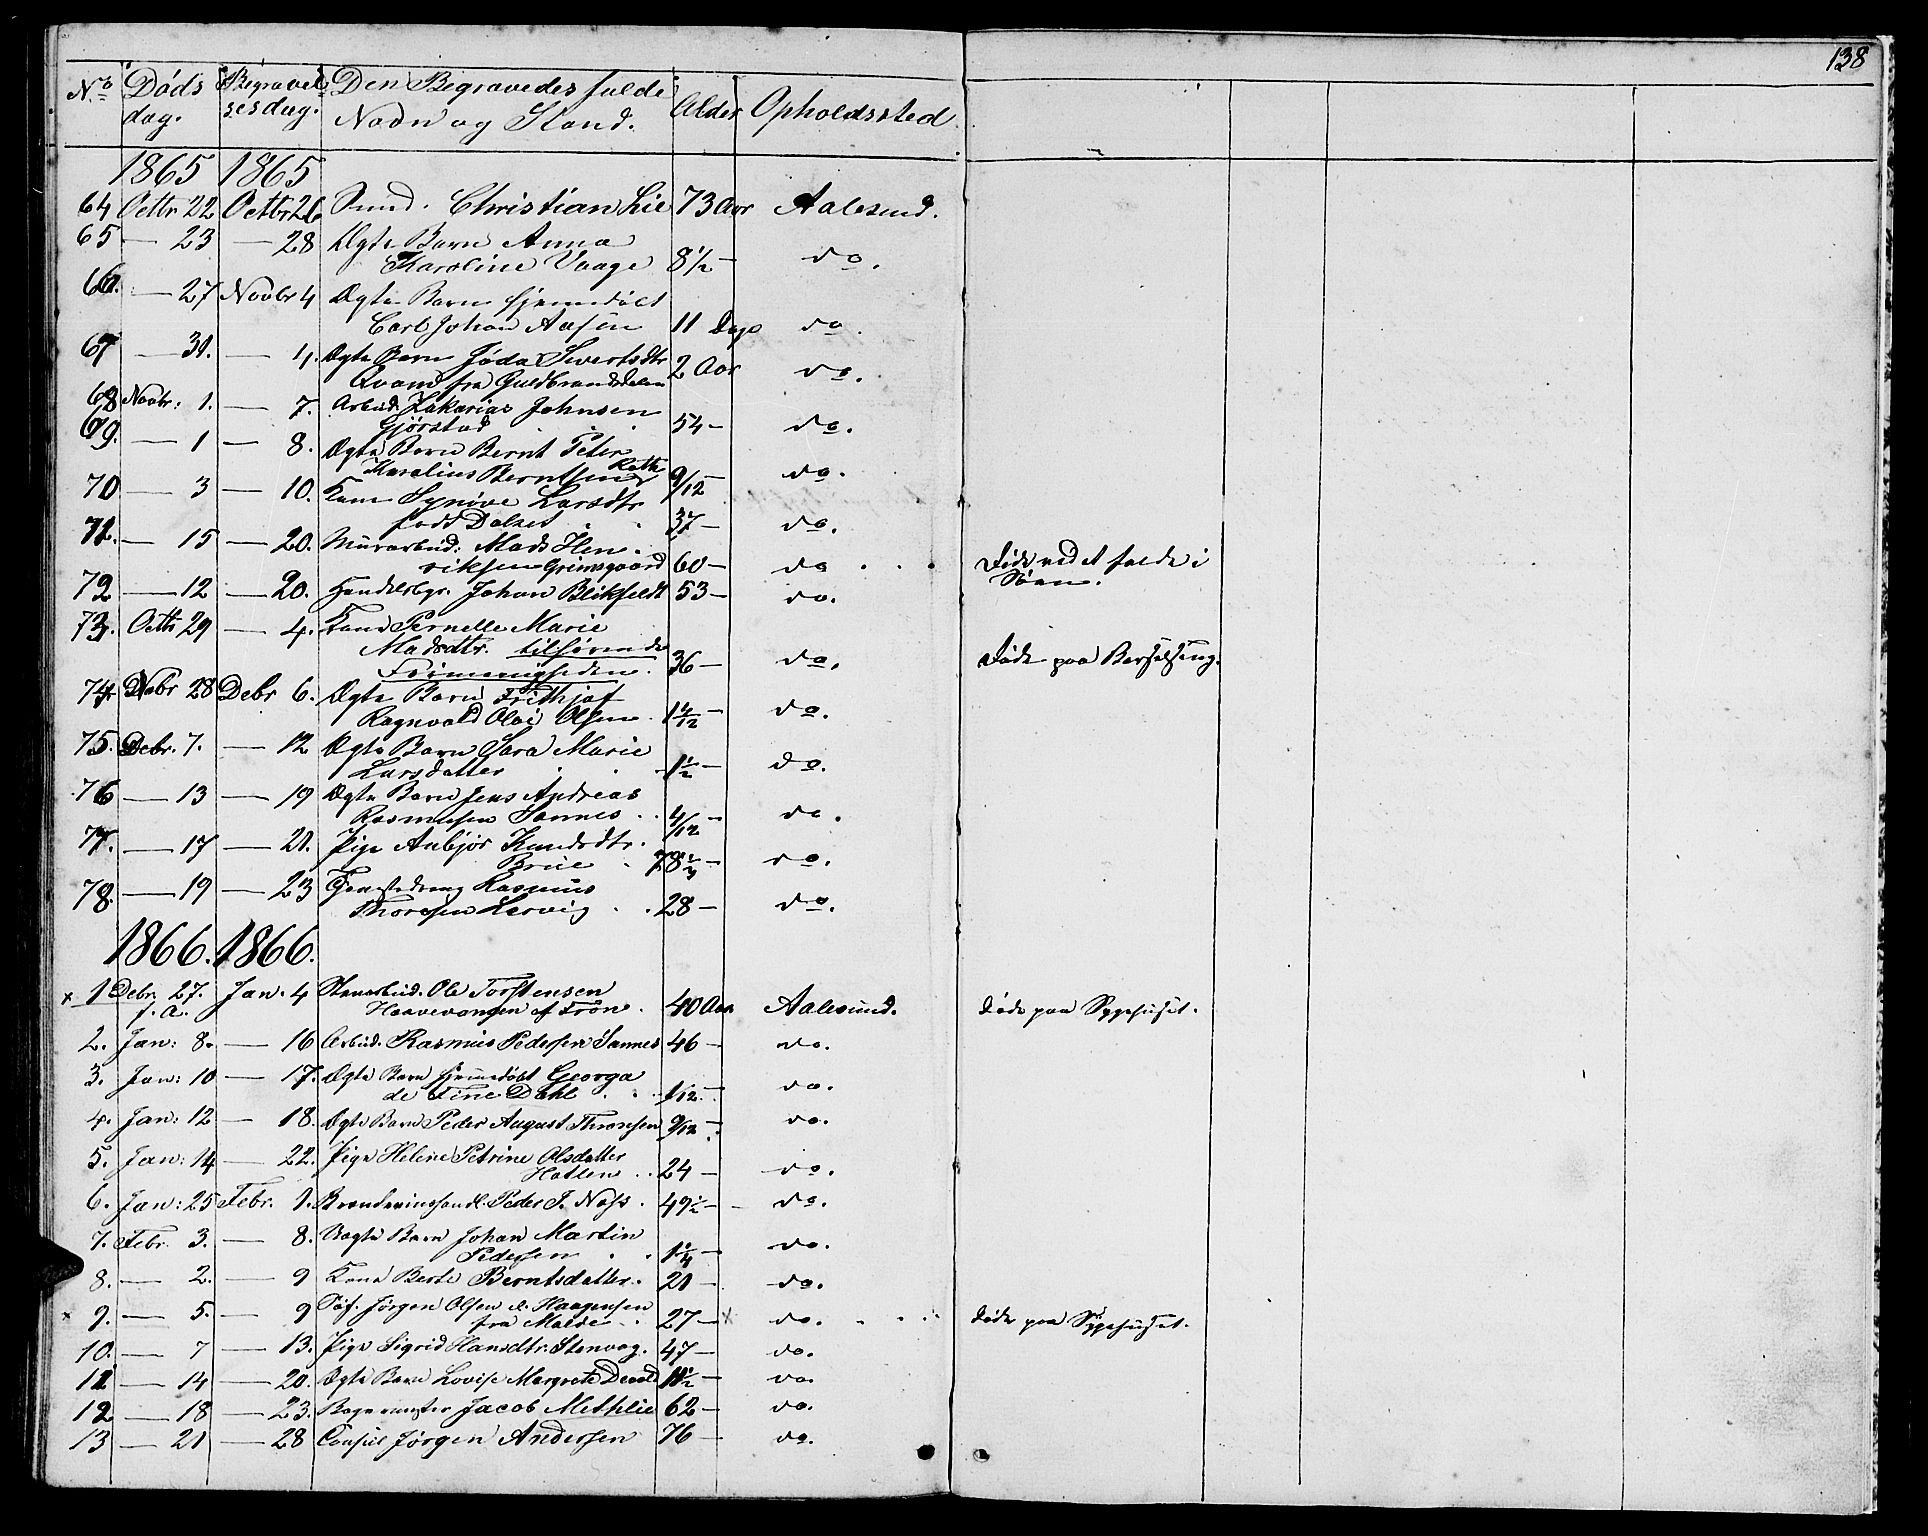 138
No Döds Begravel Den Begravedes fulde Alder Opholdssted
dag. sesdag. Navn og Stand.
1865 1865
64 Octbr 22 Octbr 26 Christian Lie 73 Aar Aalesund.
65 — 23 — 28 Ægte Barn Anna
Karoline Vaage 8½ — do.
66. — 27 Novbr 4 Ægte Barn hjemmedöbt
Carl Johan Aasen 11 Dage do.
67 — 31. — 4. Ægte Barn Sivertsdtr 2 Aar do.
fra Guldbrandsdalen
68 Novbr: 1. — 7. Arbeid. Zakarias Johnsen
Gjörstad 54 — do.
69. — 1 — 8. Ægte Barn Bernt Peter
Karolius Berntsen 9/12 — do.
70 — 3 — 10. Kone Synöve Larsdtr
födt Dalset 37 — do.
71. — 15 — 20. Murarbeid: Mads Hen-
riksen Grimsgaard 60 — do . . . Döde ved et fald i
Söen.
72 — 12 — 20. Handelsbgr. Johan Blikfeldt 53 — do.
73. Octb 29 — 4. Kone Pernelle Marie
Madsdtr. tilhörende
36 — do. Döde paa Barselseng.
74 Nobr 28 Debr 6. Ægte Barn Frithjof
Ragnvald Olai Olsen 1 do.
75. Debr. 7. — 12 Ægte Barn Sara Marie
Larsdatter 1½ — do.
76 — 13 — 19 Ægte Barn Jens Andreas
Rasmussen Sannes 4/12 — do.
77. — 17 — 21. Pige Anbjör Knudsdtr.
Brue 78 — do.
78. — 19 — 23 Tjenestedreng Rasmus
Thoresen Lervig 28 — do.
1866. 1866.
x 1 Debr. 27. Jan. 4 Ole Torstensen
f. A. Haavevangen af Fron. 40 Aar Aalesund. Döde paa Sygehuset.
2. Jan: 8. — 16 Arbeid. Rasmus Pedersen Sannes 46 — do.
3. Jan: 10 — 17. Ægte Barn hjemmedöbt Georga
de Fine Dahl 1/12 — do.
4. Jan: 12 — 18. Ægte Barn Peder August Thronsen 9/12 — do.
5. Jan: 14 — 22. Pige Helene Petrine Olsdatter
Hatlen 24 — do.
6. Jan: 25 Febr. 1. Brændevinshandl. Peder J. Næss. 49½ — do.
7. Febr. 3. — 8. Uægte Barn Johan Martin
Pedersen 1¼ — do.
8. — 2. — 9 Kone Berte Berntsdatter. 21 — do.
x 9. — 5. — 9 Jörgen Olsen Haagensen
fra Molde 27 — x do. . . . Döde paa Sygehuset.
10. — 7 — 13. Pige Sigrid Hansdtr. Stenvaag. 47 — do.
11 — 14 — 20. Ægte Barn Lovise Margrete Devold do.
12 — 18 — 23. Bagermester Jacob Methlie 62 — do.
13 — 21 — 28 Consul Jörgen Andersen 76 — do.